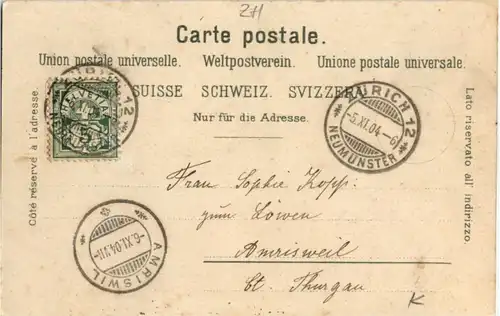 ZH
Carte postale.
Union postale universelle. Weltpostverein. Unione postale universale.
SUISSE SCHWEIZ. SVIZZERA
Nur für die Adresse.
Côté réservé à l'adresse.
Lato riservato all' indirizzo.
ZÜRICH 12
-5.XI.04-6
NEUMÜNSTER
Frau Sophie Kopp.
zum Löwen
Amrisweil
Ct. Thurgau
AMRISWIL
-6.XI.04.VII-
K